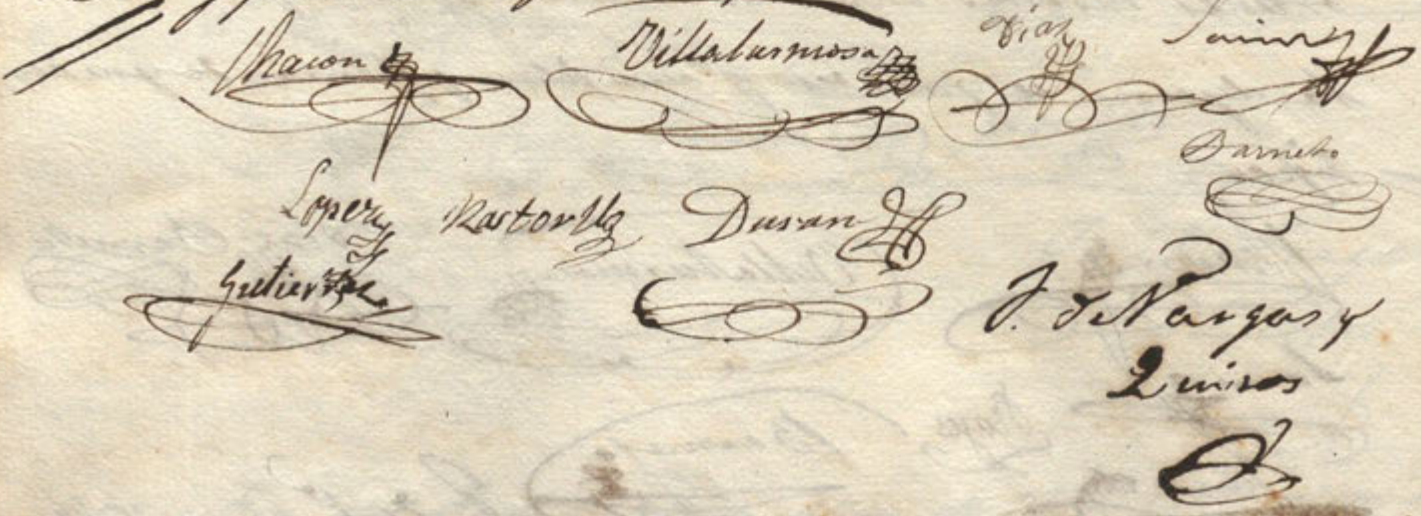 Chacon Villahermosa Diaz
Barneto
Lopez Duran
Gutierrez
J. de Vargas y
Quiros